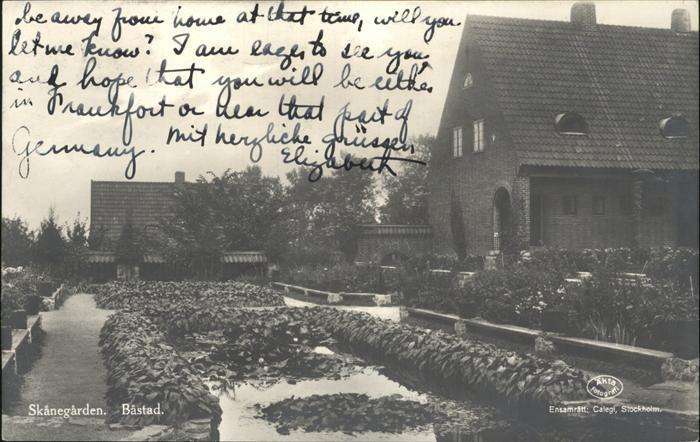 be away from home at that time, will you
let me know? I am eager to see you,
and hope that you will be either
in Frankfort or near that part of
Germany. Mit herzliche grüssen
Elizabeth
Skånegården. Båstad.
Äkta
Fotografi
Ensamrätt: Calegi, Stockholm.